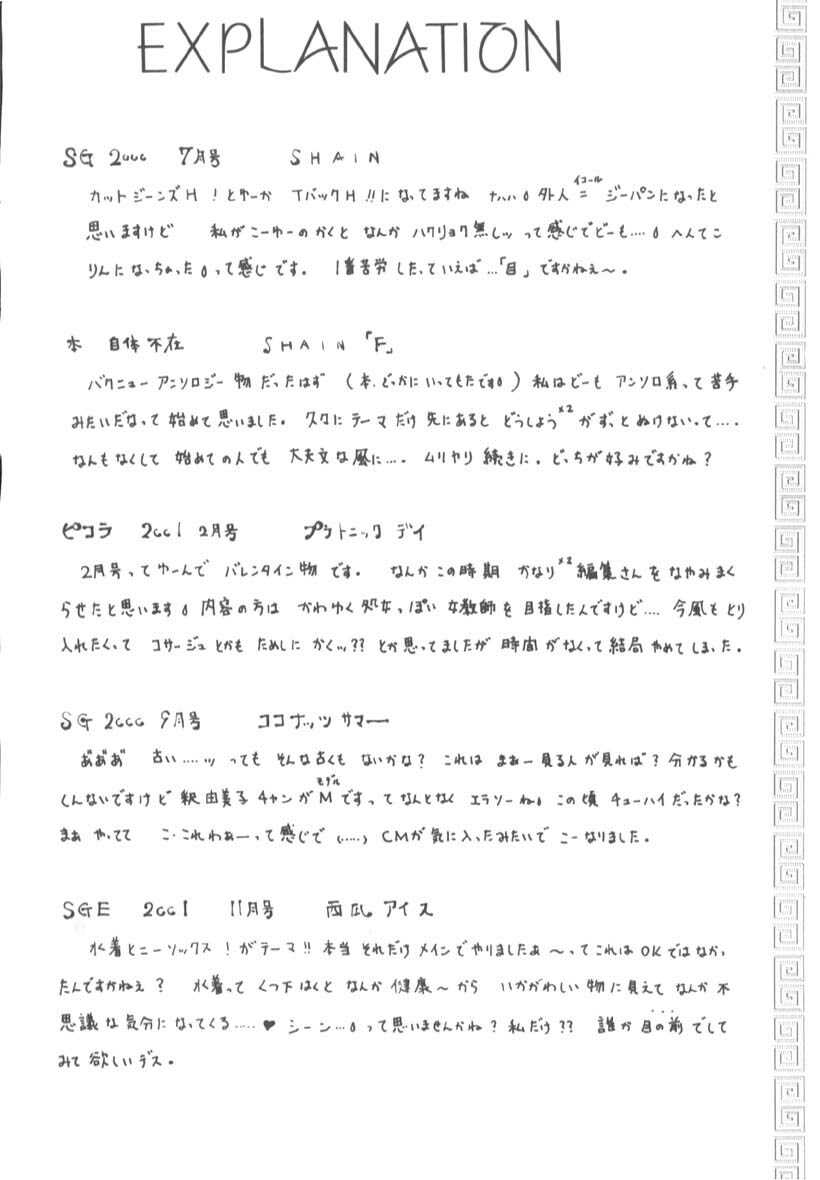 EXPLANATION
SG 2000 7月号 SHAIN
カットジーンズH!とゆーか TバックH!!になってますね ナハハ。外人=ジーパンになったと
イコール
思いますけど 私がこーゆーのかくと なんか ハクリョク無しッ って感じでどーも....。へんてこ
りんになっちゃった。って感じです。 1番苦労したっていえば...「目」ですかねぇ〜。
本 自体不在 SHAIN「F」
バクニュー アンソロジー 物だったはず (本、どっかにいってもたです。)私はどーも アンソロ系って苦手
みたいだなって 始めて思いました。 タクに テーマだけ 先にあると どうしよう×2 がずっとぬけないって....。
なんもなくして 始めての人でも 大丈夫な風に....。 ムリヤリ 続きに。どっちが好みですかね?
ピコラ 2001 2月号 プラトニック デイ
2月号ってゆーんで バレンタイン物です。 なんか この時期 かなり×2 編集さんを なやみまく
らせたと思います。内容の方は かわゆく処女っぽい 女教師を 目指したんですけど.... 今風もとり
入れたくって コサージュとかも ためしに かくッ?? とか思ってましたが 時間がなくって結局やめてしまった。
SG 2000 9月号 ココナッツ サマー
あ゛あ゛あ゛ 古い....ッ っても そんな古くも ないかな? これは まぁー見る人が見れば?分かるかも
しんないですけど 釈由美子チャンがMですって なんとなく エラソーね。この頃 チューハイだったかな?
モデル
まぁ やってて こ・これわぁーって感じで(.....) CMが気に入ったみたいで こーなりました。
SGE 2001 11月号 西瓜 アイス
水着とニーソックス!がテーマ!! 本当 それだけ メインでやりましたぁ〜ってこれは OKではなかっ
たんですかねぇ? 水着って くつ下はくと なんか 健康〜から いかがわしい 物に見えて なんか 不
思議な気分に なってくる.....♥ シーン...。って思いませんかね?私だけ?? 誰か 目の前でしで
みて欲しいデス。